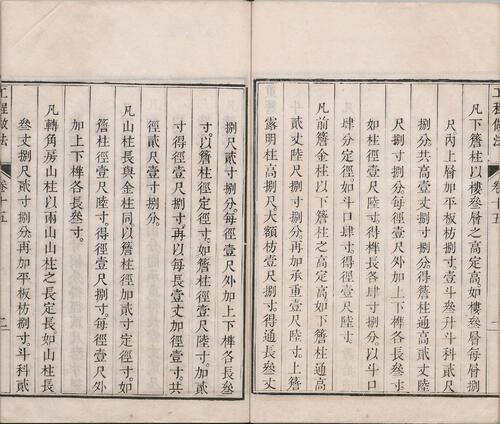 工程做法
卷十五
一
凡下簷柱以樓叁層之高定高如每層捌
尺內上層加平板枋捌寸壹斗叁升斗科貳尺
捌分共高壹丈捌寸捌分得簷柱通高貳丈陸
尺捌寸捌分每徑壹尺外加上下榫各長叁寸
如柱徑壹尺陸寸得榫長各肆寸捌分以斗口
肆分定徑如斗口肆寸得徑壹尺陸寸
凡前簷金柱以下簷柱之高定高如下簷柱通高
貳丈陸尺捌寸捌分再加承重壹尺貳寸上簷
露明柱高捌尺大額枋壹尺捌寸得通長叁丈
捌尺貳寸捌分每徑壹尺外加上下榫各長叁
寸以簷柱徑定徑如簷柱徑壹尺陸寸加貳
寸得徑壹尺捌寸再以每長壹丈加徑壹寸共
徑貳尺壹寸捌分
凡山柱長與金柱同以簷柱徑加貳寸定徑如
簷柱徑壹尺陸寸得徑壹尺捌寸每徑壹尺外
加上下榫各長叁寸
凡轉角房山柱以兩山山柱之長定長如山柱長
叁丈捌尺貳寸捌分再加平板枋捌寸斗科貳
工程做法
卷十五
二